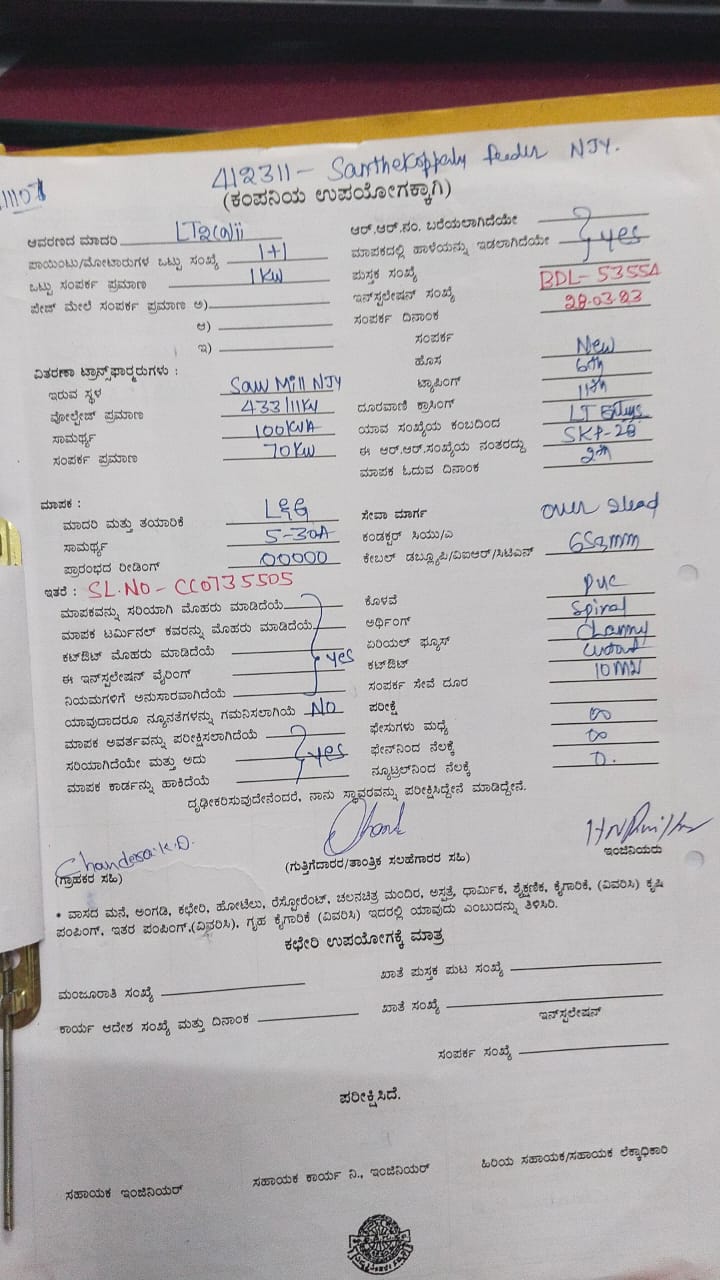 412311 - Santhekoppaly feeder NJY.
11107
(ಕಂಪನಿಯ ಉಪಯೋಗಕ್ಕಾಗಿ)
ಆವರಣದ ಮಾದರಿ LT2(a)ii
ಪಾಯಿಂಟು/ಮೋಟಾರುಗಳ ಒಟ್ಟು ಸಂಖ್ಯೆ 1+1
ಒಟ್ಟು ಸಂಪರ್ಕ ಪ್ರಮಾಣ 1KW
ಪೇಜ್ ಮೇಲೆ ಸಂಪರ್ಕ ಪ್ರಮಾಣ ಅ)
ಆ)
ಇ)
ವಿತರಣಾ ಟ್ರಾನ್ಸ್‌ಫಾರ್‍ಮರುಗಳು :
ಇರುವ ಸ್ಥಳ Saw Mill NJY
ವೋಲ್ಟೇಜ್ ಪ್ರಮಾಣ 433/11KV
ಸಾಮರ್ಥ್ಯ 100KVA
ಸಂಪರ್ಕ ಪ್ರಮಾಣ 70KW
ಆರ್.ಆರ್.ನಂ. ಬರೆಯಲಾಗಿದೆಯೇ
ಮಾಪಕದಲ್ಲಿ ಹಾಳೆಯನ್ನು ಇಡಲಾಗಿದೆಯೇ yes
ಪುಸ್ತಕ ಸಂಖ್ಯೆ
ಇನ್‌ಸ್ಟಲೇಷನ್ ಸಂಖ್ಯೆ BDL-53554
ಸಂಪರ್ಕ ದಿನಾಂಕ 28.03.23
ಸಂಪರ್ಕ
ಹೊಸ New
ಟ್ಯಾಪಿಂಗ್ 6th
ದೂರವಾಣಿ ಕ್ರಾಸಿಂಗ್ 11th
ಯಾವ ಸಂಖ್ಯೆಯ ಕಂಬದಿಂದ LT
ಈ ಆರ್.ಆರ್.ಸಂಖ್ಯೆಯ ನಂತರದ್ದು SKP-28
ಮಾಪಕ ಓದುವ ದಿನಾಂಕ 2th
ಮಾಪಕ :
ಮಾದರಿ ಮತ್ತು ತಯಾರಿಕೆ L&G
ಸಾಮರ್ಥ್ಯ 5-30A
ಪ್ರಾರಂಭದ ರೀಡಿಂಗ್ 00000
ಇತರೆ : SL.NO - CC0735505
ಮಾಪಕವನ್ನು ಸರಿಯಾಗಿ ಮೊಹರು ಮಾಡಿದೆಯೆ
ಮಾಪಕ ಟರ್ಮಿನಲ್ ಕವರನ್ನು ಮೊಹರು ಮಾಡಿದೆಯೆ
ಕಟ್‌ಔಟ್ ಮೊಹರು ಮಾಡಿದೆಯೆ
ಈ ಇನ್‌ಸ್ಟಲೇಷನ್ ವೈರಿಂಗ್ yes
ನಿಯಮಗಳಿಗೆ ಅನುಸಾರವಾಗಿದೆಯೆ
ಯಾವುದಾದರೂ ನ್ಯೂನತೆಗಳನ್ನು ಗಮನಿಸಲಾಗಿಯೆ NO
ಮಾಪಕ ಅವರ್ತವನ್ನು ಪರೀಕ್ಷಿಸಲಾಗಿದೆಯೆ
ಸರಿಯಾಗಿದೆಯೇ ಮತ್ತು ಅದು yes
ಮಾಪಕ ಕಾರ್ಡನ್ನು ಹಾಕಿದೆಯೆ
ಸೇವಾ ಮಾರ್ಗ over
ಕಂಡಕ್ಟರ್ ಸಿಯು/ಎ
ಕೇಬಲ್ ಡಬ್ಲ್ಯೂಪಿ/ವಿಐಆರ್/ಸಿಟಿಎನ್ 6Sqmm
ಕೊಳವೆ pvc
ಅರ್ಥಿಂಗ್ Spiral
ಏರಿಯಲ್ ಫ್ಯೂಸ್
ಕಟ್‌ಔಟ್ Cutout
ಸಂಪರ್ಕ ಸೇವೆ ದೂರ 10
ಪರೀಕ್ಷೆ
ಫೇಸುಗಳು ಮಧ್ಯೆ ∞
ಫೇಸ್‌ನಿಂದ ನೆಲಕ್ಕೆ ∞
ನ್ಯೂಟ್ರಲ್‌ನಿಂದ ನೆಲಕ್ಕೆ 0.
ದೃಢೀಕರಿಸುವುದೇನೆಂದರೆ, ನಾನು ಸ್ಥಾವರವನ್ನು ಪರೀಕ್ಷಿಸಿದ್ದೇನೆ ಮಾಡಿದ್ದೇನೆ.
(ಗ್ರಾಹಕರ ಸಹಿ)
(ಗುತ್ತಿಗೆದಾರರ/ತಾಂತ್ರಿಕ ಸಲಹೆಗಾರರ ಸಹಿ)
ಇಂಜಿನಿಯರು
* ವಾಸದ ಮನೆ, ಅಂಗಡಿ, ಕಛೇರಿ, ಹೋಟೆಲು, ರೆಸ್ಟೋರೆಂಟ್, ಚಲನಚಿತ್ರ ಮಂದಿರ, ಅಸ್ಪತ್ರೆ, ಧಾರ್ಮಿಕ, ಶೈಕ್ಷಣಿಕ, ಕೈಗಾರಿಕೆ, (ವಿವರಿಸಿ) ಕೃಷಿ
ಪಂಪಿಂಗ್, ಇತರ ಪಂಪಿಂಗ್,(ವಿವರಿಸಿ), ಗೃಹ ಕೈಗಾರಿಕೆ (ವಿವರಿಸಿ) ಇದರಲ್ಲಿ ಯಾವುದು ಎಂಬುದನ್ನು ತಿಳಿಸಿರಿ.
ಕಛೇರಿ ಉಪಯೋಗಕ್ಕೆ ಮಾತ್ರ
ಮಂಜೂರಾತಿ ಸಂಖ್ಯೆ
ಖಾತೆ ಪುಸ್ತಕ ಪುಟ ಸಂಖ್ಯೆ
ಕಾರ್ಯ ಆದೇಶ ಸಂಖ್ಯೆ ಮತ್ತು ದಿನಾಂಕ
ಖಾತೆ ಸಂಖ್ಯೆ
ಇನ್‌ಸ್ಟಲೇಷನ್
ಸಂಪರ್ಕ ಸಂಖ್ಯೆ
ಪರೀಕ್ಷಿಸಿದೆ.
ಸಹಾಯಕ ಇಂಜಿನಿಯರ್
ಸಹಾಯಕ ಕಾರ್ಯ ನಿ., ಇಂಜಿನಿಯರ್
ಹಿರಿಯ ಸಹಾಯಕ/ಸಹಾಯಕ ಲೆಕ್ಕಾಧಿಕಾರಿ